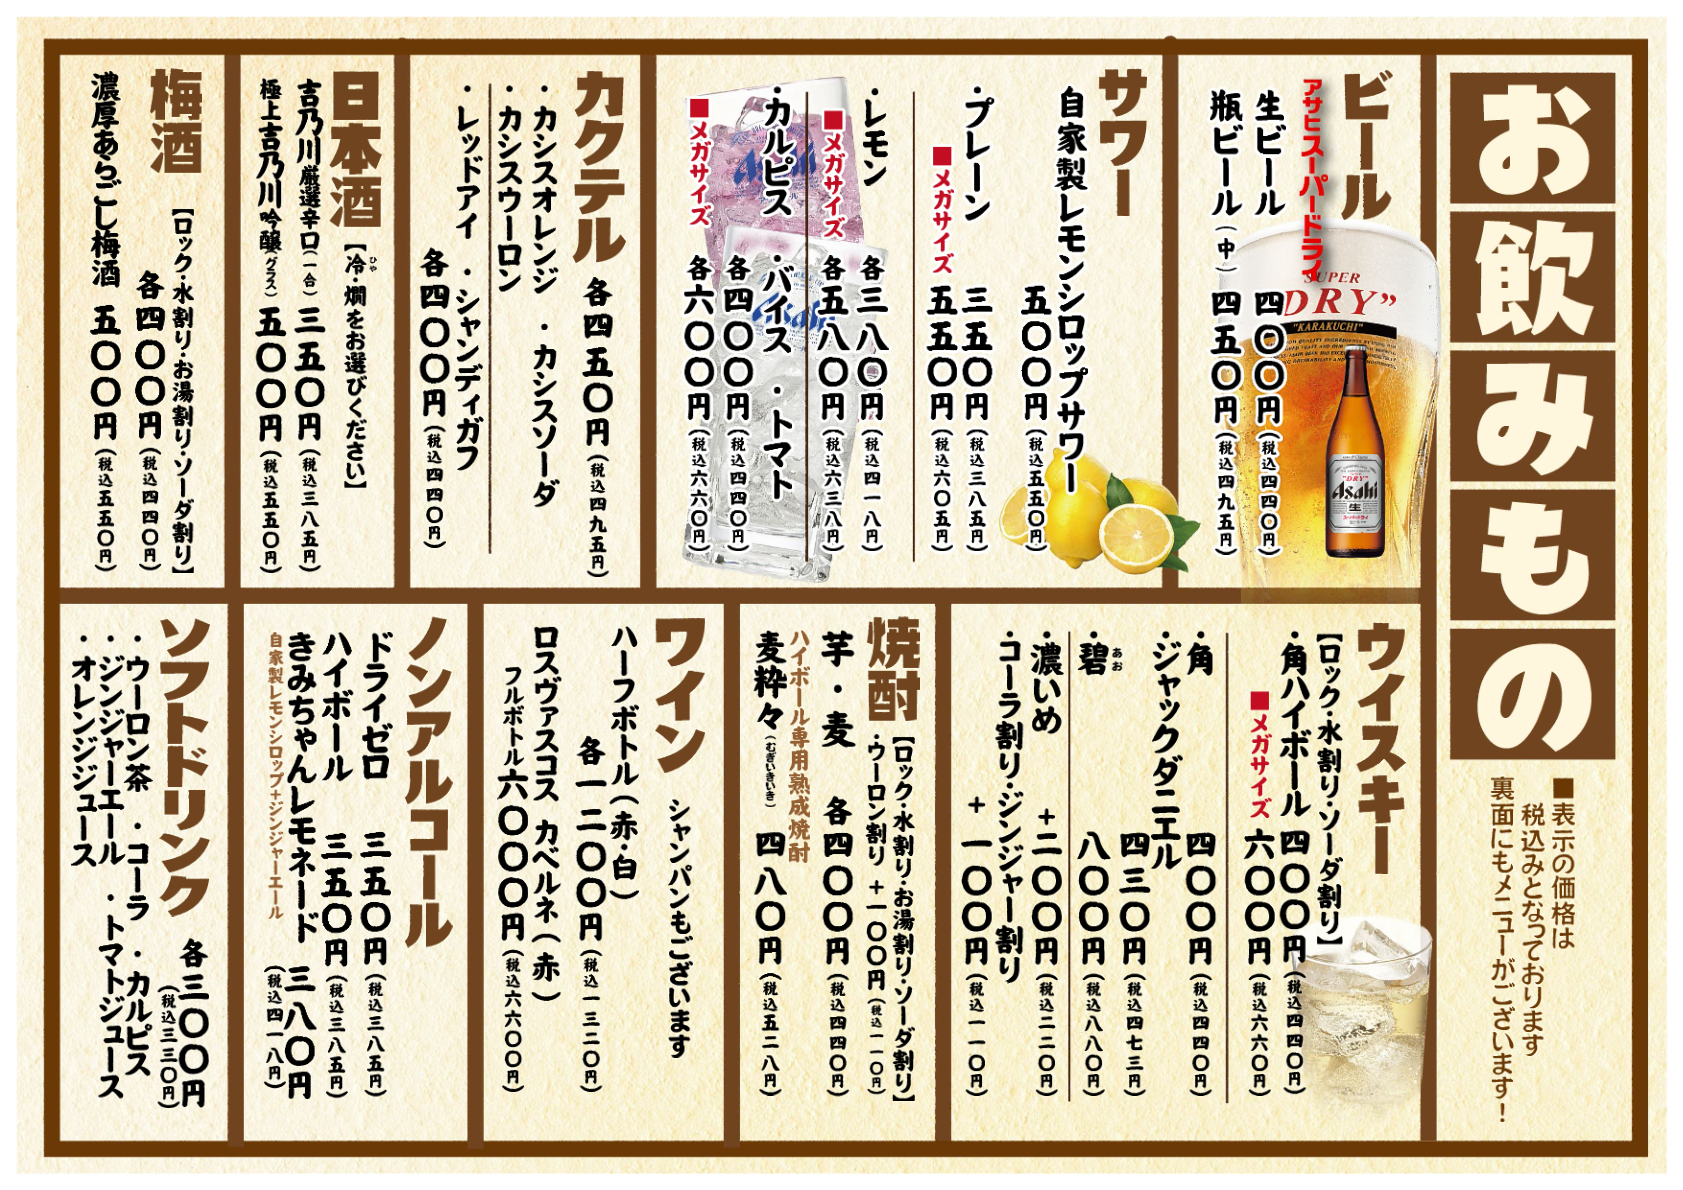 お飲みもの
■表示の価格は
税込みとなっております
裏面にもメニューがございます！
ビール
アサヒスーパードライ
生ビール 四〇〇円（税込四四〇円）
瓶ビール（中） 四五〇円（税込四九五円）
SUPER
"DRY"
"KARAKUCHI"
"DRY"
Asahi
生
サワー
自家製レモンシロップサワー
五〇〇円（税込五五〇円）
・プレーン 三五〇円（税込三八五円）
■メガサイズ 五五〇円（税込六〇五円）
・レモン 各三八〇円（税込四一八円）
■メガサイズ 各五八〇円（税込六三八円）
・カルピス ・バイス ・トマト
各四〇〇円（税込四四〇円）
■メガサイズ 各六〇〇円（税込六六〇円）
Asahi
Asahi
カクテル 各四五〇円（税込四九五円）
・カシスオレンジ ・カシスソーダ
・カシスウーロン
・レッドアイ ・シャンディガフ
各四〇〇円（税込四四〇円）
日本酒【冷・燗をお選びください】
ひや
吉乃川 厳選辛口（一合） 三五〇円（税込三八五円）
極上吉乃川 吟醸（グラス） 五〇〇円（税込五五〇円）
梅酒
【ロック・水割り・お湯割り・ソーダ割り】
各四〇〇円（税込四四〇円）
濃厚あらごし梅酒 五〇〇円（税込五五〇円）
ウイスキー
【ロック・水割り・ソーダ割り】
・角ハイボール 四〇〇円（税込四四〇円）
■メガサイズ 六〇〇円（税込六六〇円）
・角 四〇〇円（税込四四〇円）
・ジャックダニエル
四三〇円（税込四七三円）
・碧 八〇〇円（税込八八〇円）
あお
・濃いめ ＋二〇〇円（税込二二〇円）
・コーラ割り・ジンジャー割り
＋一〇〇円（税込一一〇円）
焼酎
【ロック・水割り・お湯割り・ソーダ割り】
・ウーロン割り＋一〇〇円（税込一一〇円）
芋・麦 各四〇〇円（税込四四〇円）
ハイボール専用熟成焼酎
麦粋々（むぎいきいき） 四八〇円（税込五二八円）
ワイン シャンパンもございます
ハーフボトル（赤・白）
各一二〇〇円（税込一三二〇円）
ロスヴァスコス カベルネ（赤）
フルボトル 六〇〇〇円（税込六六〇〇円）
ノンアルコール
ドライゼロ 三五〇円（税込三八五円）
ハイボール 三五〇円（税込三八五円）
きみちゃんレモネード 三八〇円
（税込四一八円）
自家製レモンシロップ＋ジンジャーエール
ソフトドリンク 各三〇〇円
（税込三三〇円）
・ウーロン茶 ・コーラ ・カルピス
・ジンジャーエール ・トマトジュース
・オレンジジュース